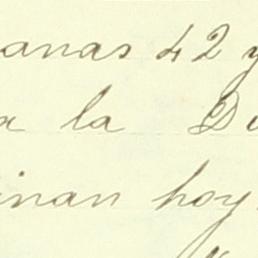 anas 42 y
a la D
inan hoy